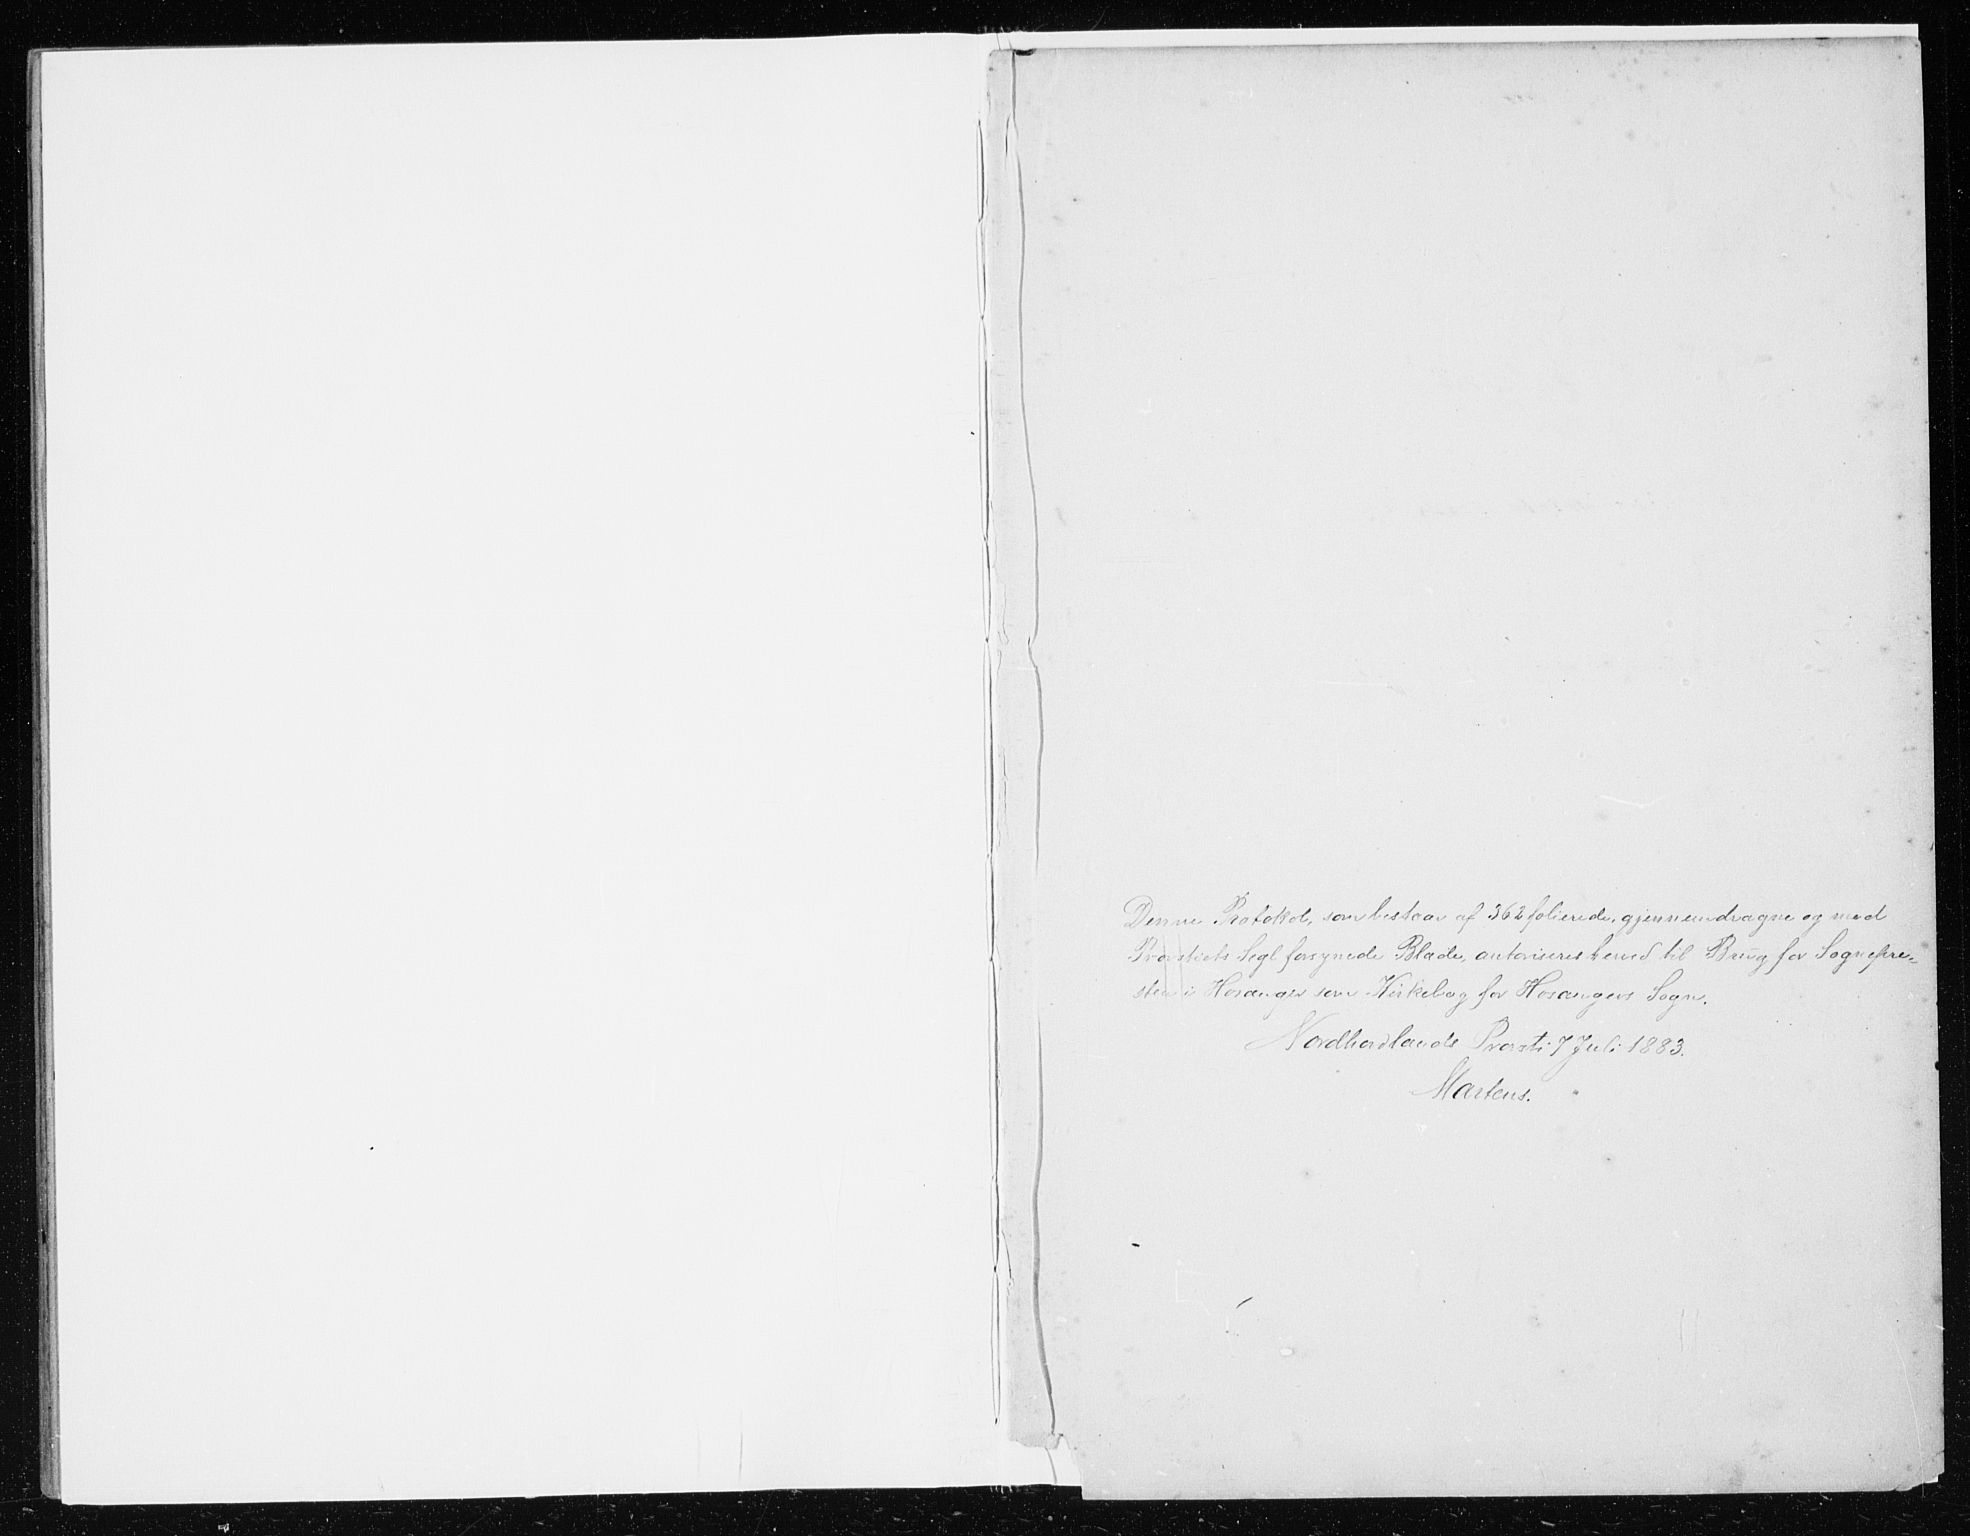 Denne Protokol, som bestaar af 362 folierede, gjennemdragne og med
Provstiets Segl forsynede Blade, autoriseres herved til Brug for Sognepre-
sten i Hosanger som Kirkebog for Hosangers Sogn.
Nordhordlands Provsti 7 Juli 1883.
Martens.